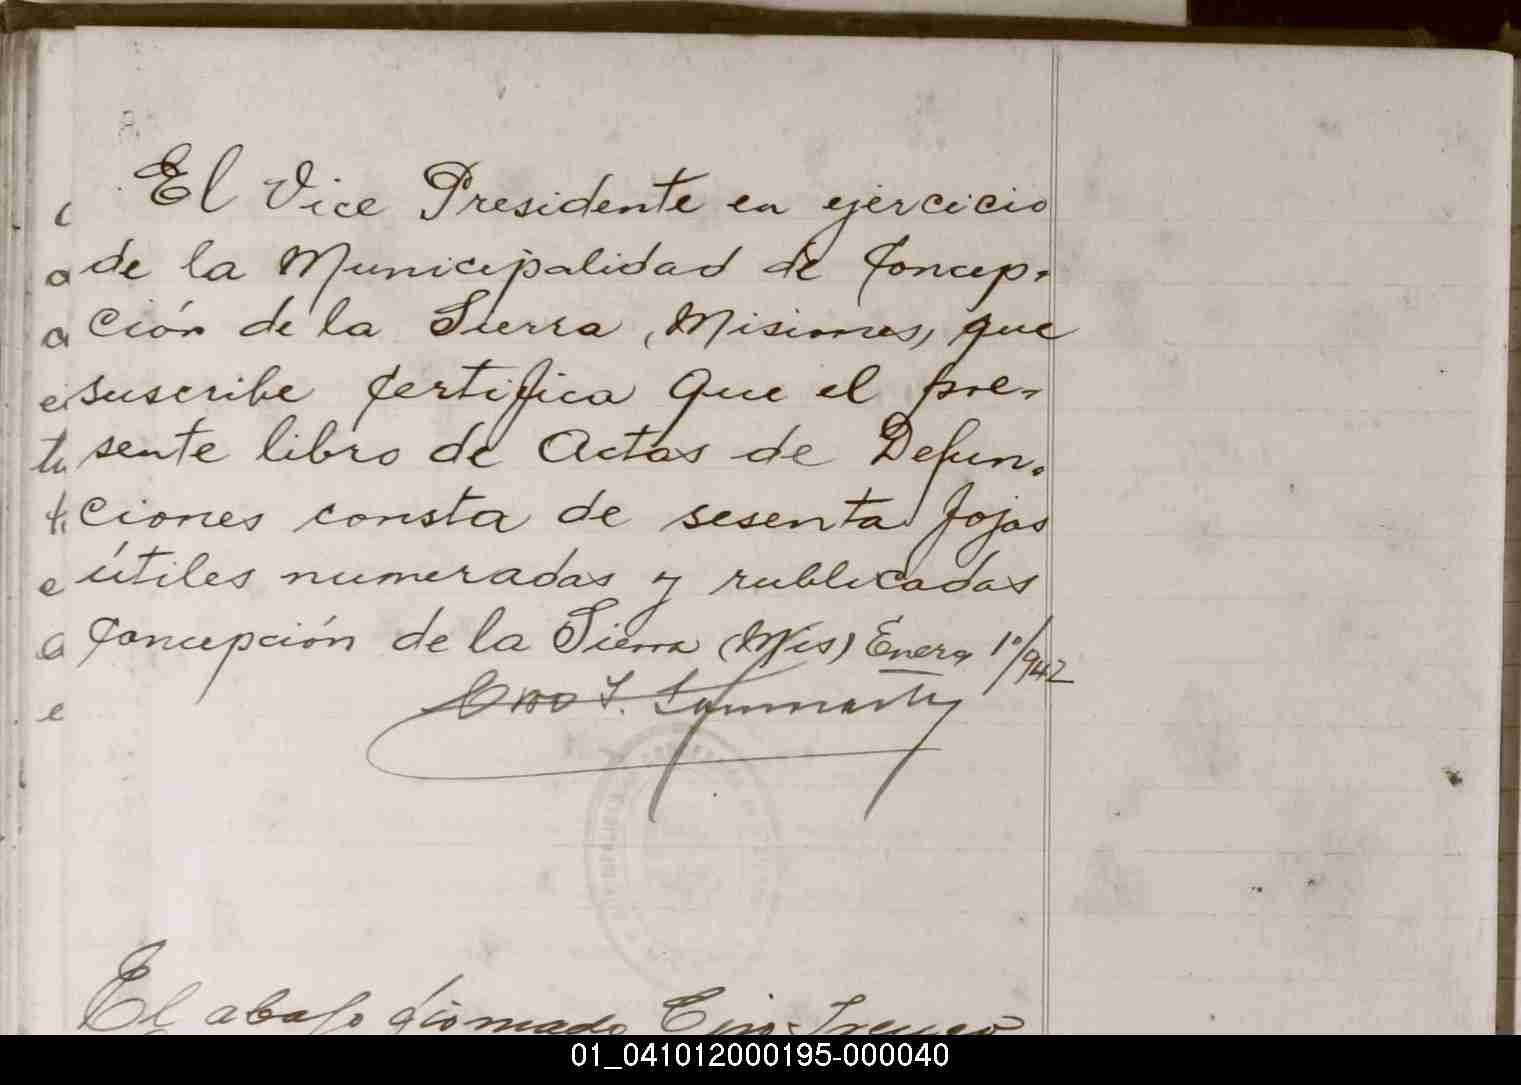 El Vice Presidente en ejercicio
de la Municipalidad de Concep-
ción de la Sierra, (Misiones, que
suscribe Certifica Que el pre-
sente libro de Actas de Defun-
ciones consta de sesenta fojas
útiles numeradas y rublicadas
Concepción de la Sierra (Mis) Enero 1º/942
El abajo firmado
01_041012000195-000040